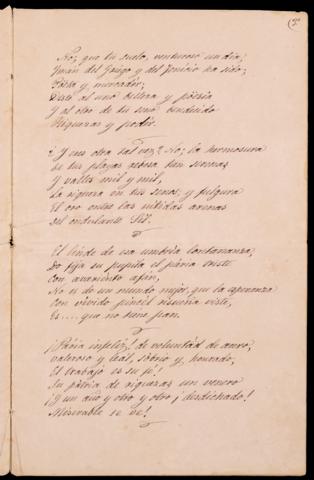 (2ª
No, que tu suelo, venturoso un dia,
Iman del Griego y del Fenicio ha sido;
Poeta y mercader;
Diste al uno belleza y poesia
Y al otro de tu seno bendecido
Riquezas y poder.
¿Y eres otra tal vez? No; la hermosura
De tus playas gozosa tan serenas
Y valles mil y mil,
La riqueza en tus senos; y fulgura
El oro entre las nítidas arenas
Del ondulante Sil.
El linde de esa umbría lontananza,
Do fija su pupila el pária triste
Con avariento afan,
No es de un mundo mejor, que la esperanza
Con vívido pincel risueña viste,
Es.... que no tiene pan.
¡Pária infeliz! de voluntad de acero,
valeroso y leal, sóbrio y, honrado;
El trabajo es su fé!
Su patria de riquezas un venero
¡Y un año y otro y otro ¡desdichado!
Miserable se vé!